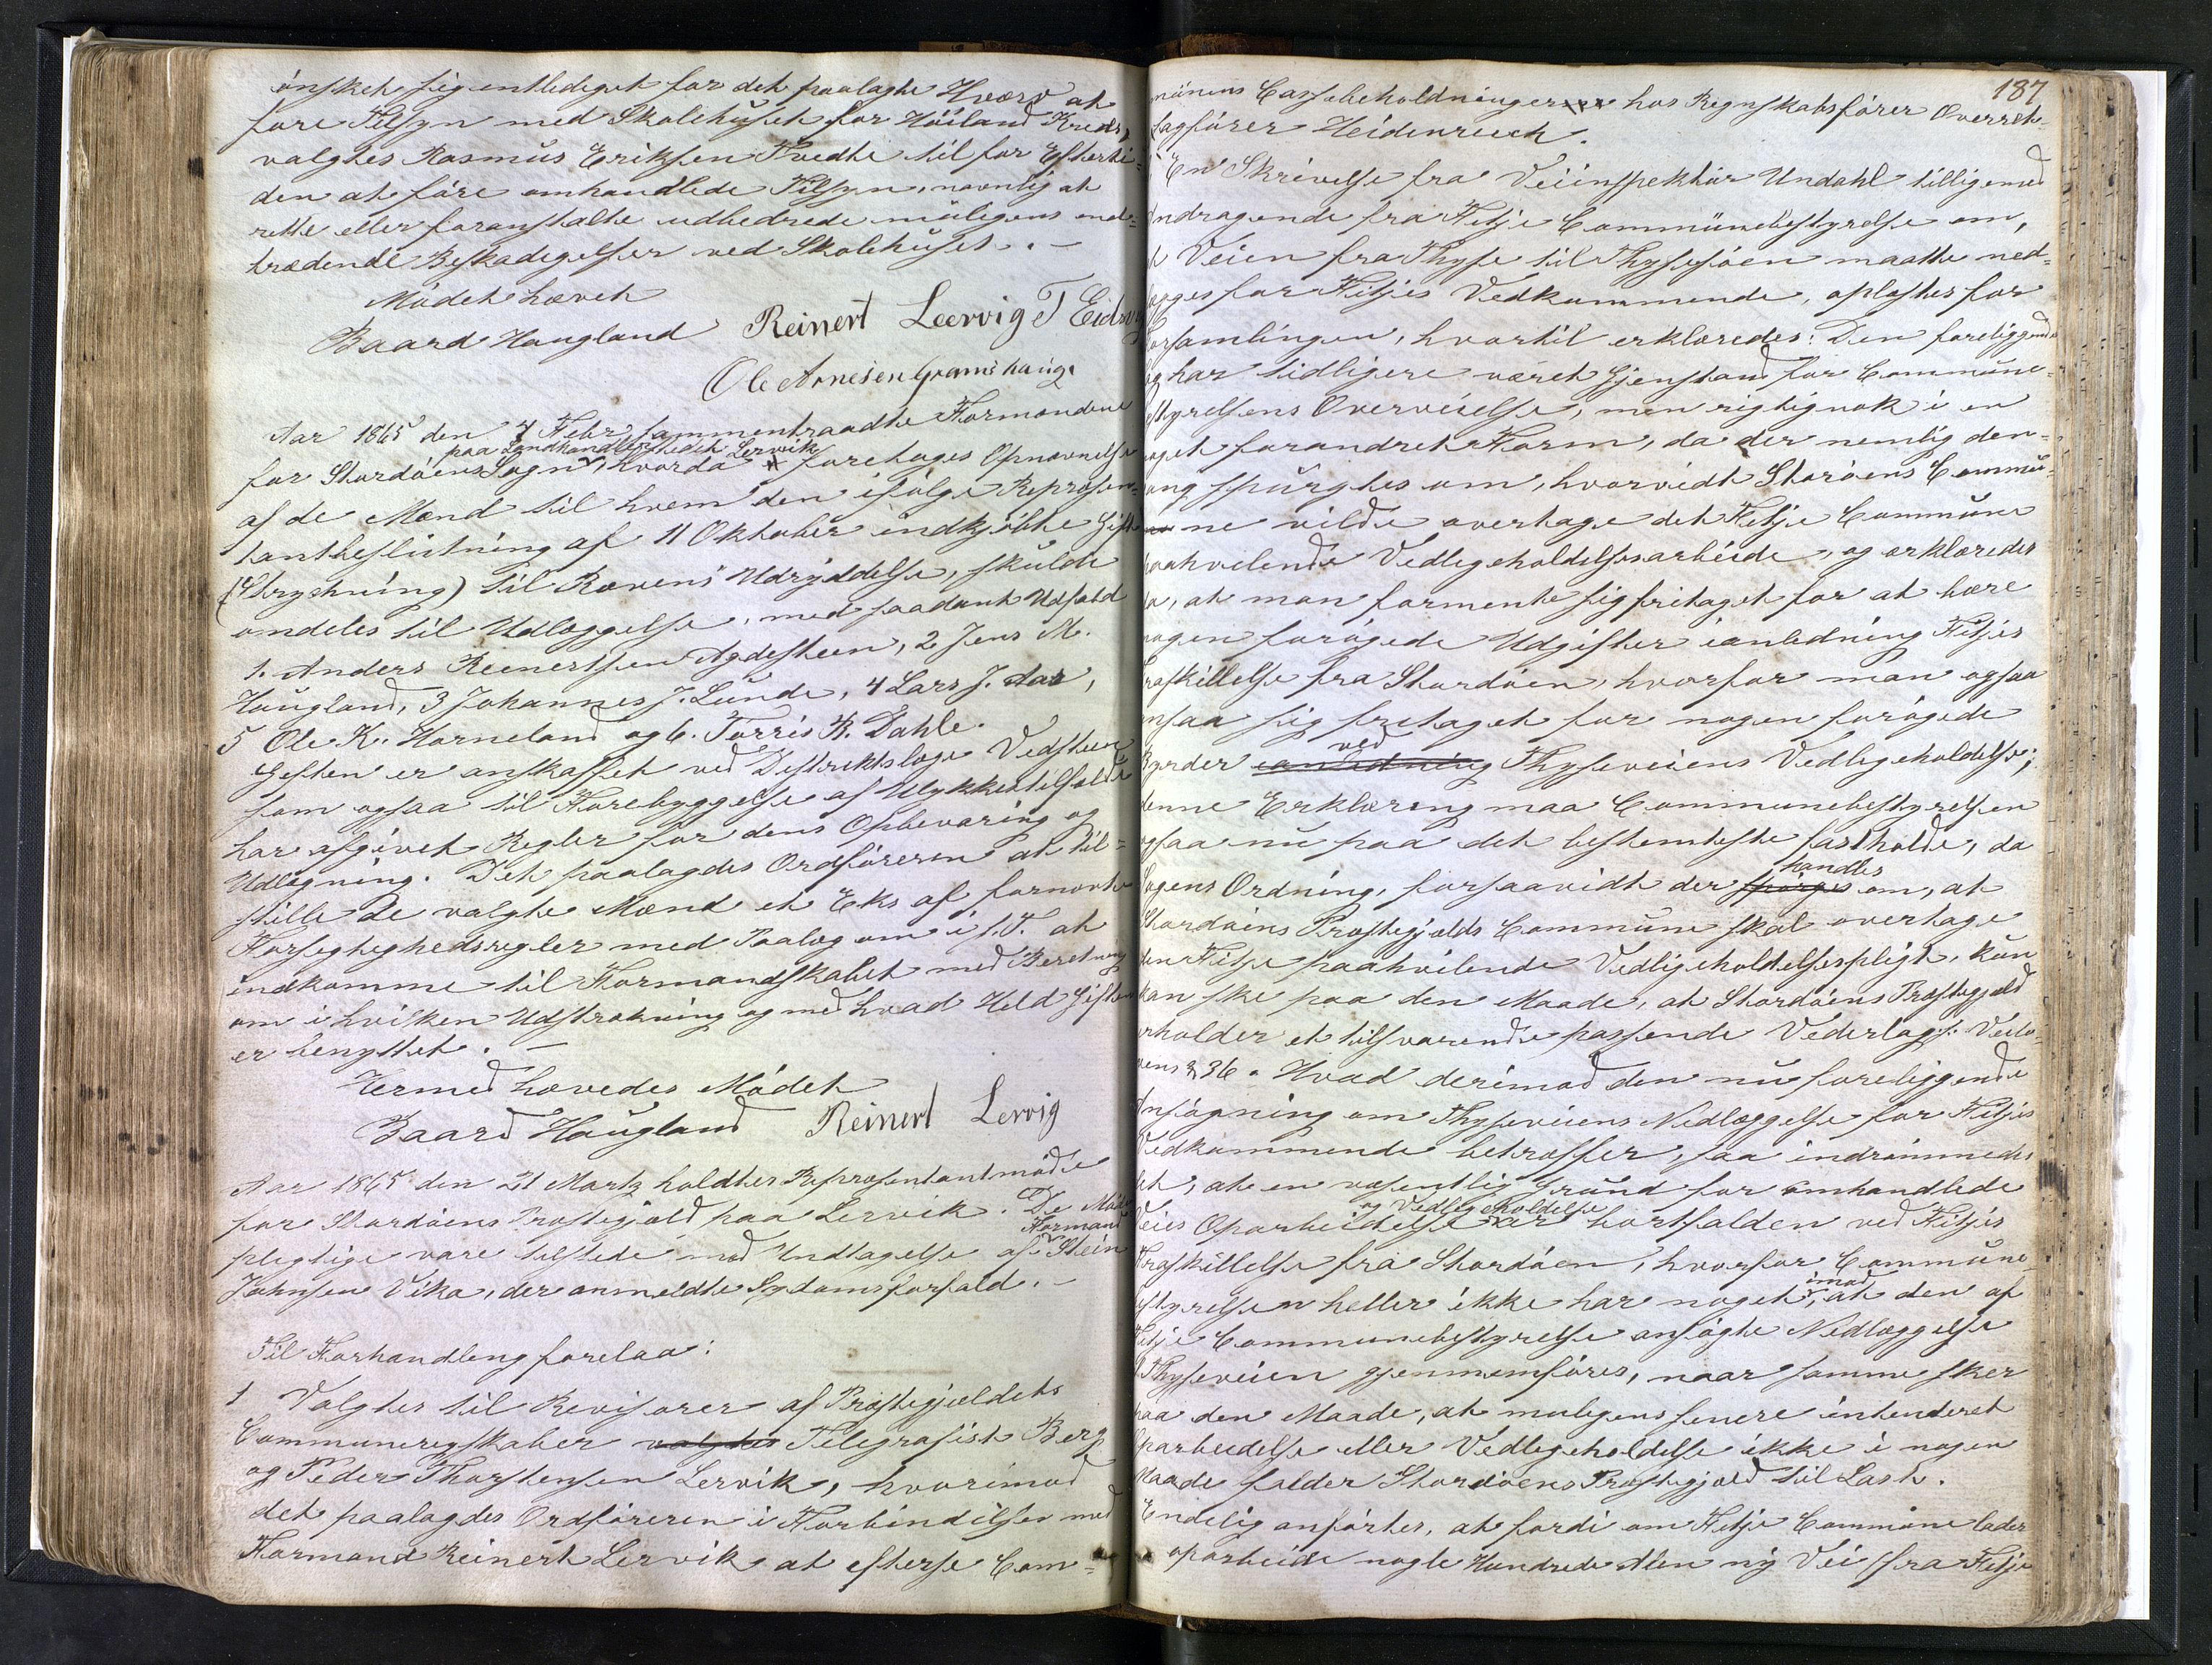 ønsket sig entlediget for det paalagte Hværv at
føre Tilsyn med Skolehuset for Høiland Kreds,
valgtes Rasmus Eriksen Tvedte til for Efterti-
den at føre omhandlede Tilsyn, navnlig at
rette eller foranstalte udbedrede muligens ind-
trædende Beskadigelser ved Skolehuset. —
Mødet hævet
Baard Haugland Reinert Leervig T Eidsvig
Ole Arnesen Gramshaug
Aar 1865 den 7 Febr sammentraadte Formændene
paa Landhandlerstedet Lervik
for Stordøens Sogn, hvorda foretoges Opnævnelse
af de Mænd til hvem den ifølge Repræsen-
tantbeslutning af 11 Oktober indkjøbte Gift
(Strychning) til Rævens Udryddelse, skulde
uddeles til Udlæggelse, med saadant Udfald
1. Anders Reinertsen Agdesteen, 2 Jens M.
Haugland, 3 Johannes J. Lunde, 4 Lars J. Aae,
5 Ole K. Horneland og 6. Tørris H. Dahle.
Giften er anskaffet ved Distriktslæge Vedsteen
som ogsaa til Forebyggelse af Ulykkestilfælde
har afgivet Regler for dens Opbevaring og
Udlægning. Det paalagdes Ordføreren at til-
stille de valgte Mænd et Eks af fornevnte
Forsigtighedsregler med Paalæg om i s. T. at
indkomme til Formandskabet med Beretning
om i hvilken Udstrækning og med hvad Held Giften
er benyttet. —
Hermed hævedes Mødet
Baard Haugland Reinert Lervig
Aar 1865 den 21 Marts holdtes Repræsentantmøde
for Stordøens Præstegjæld paa Lervik. De Møde-
Formand
pligtige vare tilstede med Undtagelse af Stein
Johnsen Vika, der anmeldte Sygdomsforfald. —
Til Forhandling forelaa:
1 Valgtes til Revisorer af Præstegjældets
Communeregskaber valgtes Telegrafist Berg
og Peder Thorstensen Lervik, hvorimod
det paalagdes Ordføreren i Forbindelse med
Formand Reinert Lervik at efterse Com-
187
münens Cassebeholdninger hos Regnskabsfører Overrets-
sagfører Heidenreich.
En Skrivelse fra Veiinspektør Undahl tilligemed
Andragende fra Fitje Commünebestyrelse om,
at Veien fra Thyse til Thysesøen maatte ned-
lægges for Fitjes Vedkommende, oplæstes for
Forsamlingen, hvortil erklæredes: Den foreliggende
Sag har tidligere været Gjenstand for Commüne-
bestyrelsens Overveielse, men rigtignok i en
noget forandret Form, da der nemlig den-
gang spurgtes om, hvorvidt Stordøens Commü-
ne vilde overtage det Fitje Commune
paahvilende Vedligeholdelsesarbeide, og erklæredes
da, at man formente sig fritaget for at bære
nogen forøgede Udgifter ianledning Fitjes
Fraskillelse fra Stordøen, hvorfor man ogsaa
ansaa sig fritaget for nogen forøgede
ved
Byrder ianledning Thyseveiens Vedligeholdelse;
denne Erklæring maa Communebestyrelsen
ogsaa nu paa det bestemteste fastholde, da
handles
Sagens Ordning, forsaavidt der spørges om, at
Stordøens Præstegjælds Commune skal overtage
den Fitje paahvilende Vedligeholdelsespligt, kun
kan ske paa den Maade, at Stordøens Præstegjæld
erholder et tilsvarende passende Vederlag jf. Veilo-
vens § 36. Hvad derimod den nu foreliggende
Ansøgning om Thyseveiens Nedlæggelse for Fitjes
Vedkommende betræffer, saa indrømmedes
det, at en væsentlig Grund for omhandlede
og Vedligeholdelse
Veies Oparbeidelse er bortfalden ved Fitjes
Fraskillelse fra Stordøen, hvorfor Commune-
imod
bestyrelsen heller ikke har noget, at den af
Fitje Communebestyrelse ansøgte Nedlæggelse
af Thyseveien gjennemføres, naar samme sker
paa den Maade, at muligens senere intenderet
Oparbeidelse eller Vedligeholdelse ikke i nogen
Maade falder Stordøens Præstegjæld til Last.
Endelig anførtes, at fordi om Fitje Commüne lader
oparbeide nogle Hundrede Alen ny Vei fra Fitje